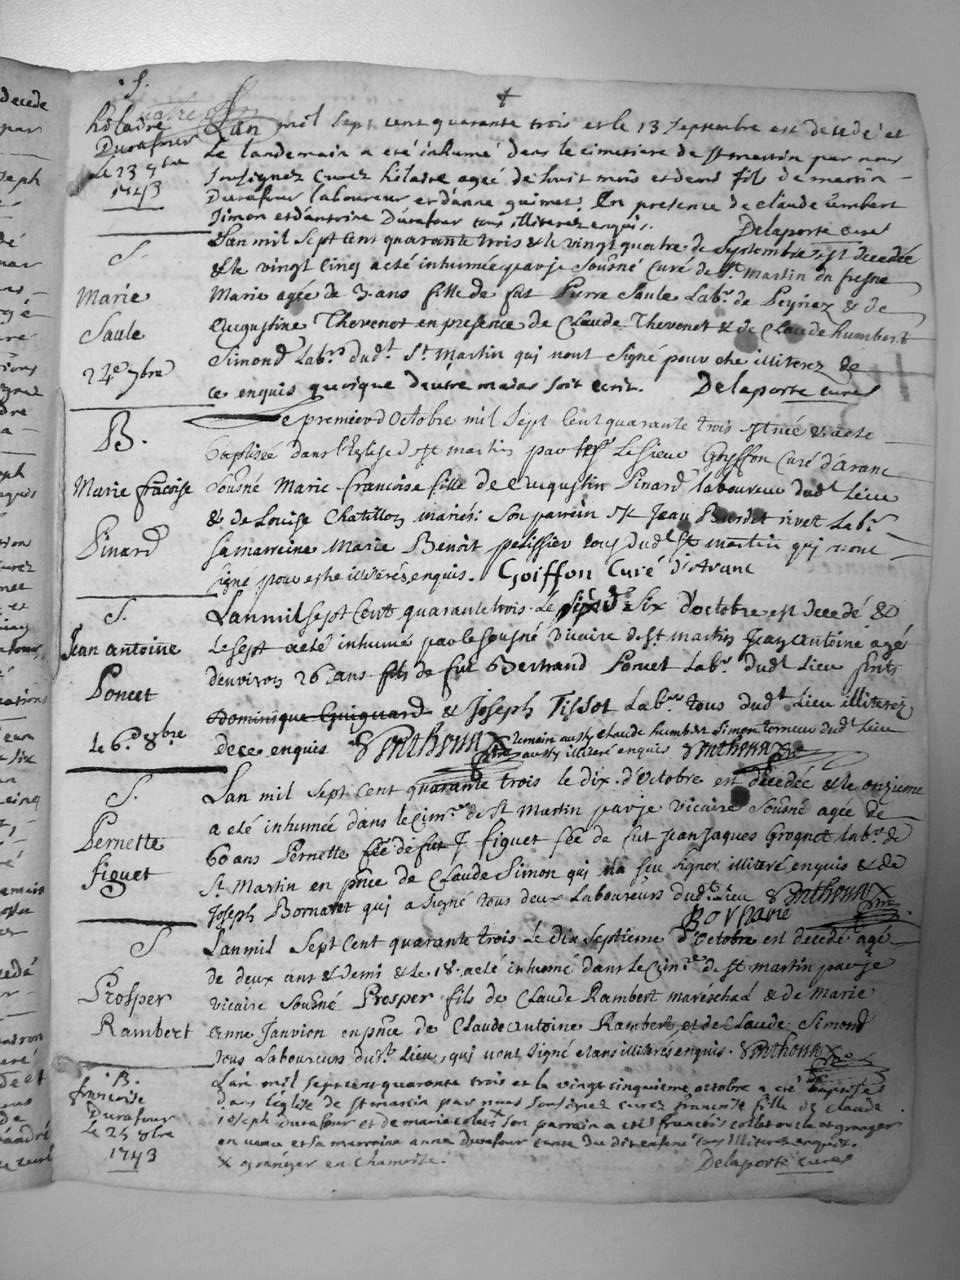 S.
hilaire
Durafour
Le 23 7bre
1743
L'an mil sept cent quarante trois et le 13 septembre est decedé et
Le landemain a eté inhumé dans le cimetiere de st martin par nous
soussignez curez hilaire ageé de huit mois et demi fils de martin
Durafour laboureur et d'anne guimet. En presence de claude humbert
simon et d'antoine Durafour tous illiterez enquis. Delaporte curé
S.
Marie
Saule
24e 7bre
L'an mil sept Cent quarante trois & le vingt quatre de septembre est decedée
& le vingt Cinq a eté inhumée par je sousné Curé de st Martin du fresne
Marie agée de 3. ans fille de fut Pierre Saule Labr de Peyriez & de
Augustine Thevenot en presence de Claude Thevenot & de Claude humbert
Simond Labrs dudt St Martin qui n'ont signé pour etre illiterez de
ce enquis quoique d'autre mains soit ecrit. Delaporte curé
B.
Marie fracoise
Pinard
Le premier d'Octobre mil sept Cent quarante trois est née & a eté
baptisée dans l'Eglise de st martin par Le sieur Goyffon Curé d'aranc
sousné Marie francoise fille de Augustin Pinard laboureur dudt Lieu
& de Louise Chatillon mariés. Son parrein st Jean Burdet rivet Labr
sa marreine Marie Benoit pelissier tous dudt st martin qui n'ont
signé pour estre illiterés enquis. Goiffon Curé d'Aranc
S.
Jean antoine
Poncet
Le 6e 8bre
L'an mil sept Cent quarante trois Le six d'octobre est decedé &
Le sept a eté inhumé par le sousné vicaire de st martin Jean Antoine agé
d'environ 26 ans fils de fut Bertrand Poncet Labr dudt Lieu
Dominique Guiguard & Joseph Tissot Labrs tous dudt Lieu illiterez
de ce enquis aussy claude humbert simon dudt Lieu
aussy illiteré enquis
S.
Pernette
figuet
L'an mil sept Cent quarante trois le dix d'Octobre est decedée & le onzieme
a eté inhumée dans le Cimre de st Martin par je vicaire sousné agée de
60 ans Pernette fée de fut J figuet fée de fut Jean Jaques Grognet Labr de
st Martin en pnce de Claude Simon qui n'a seu signer illiteré enquis & de
Joseph Bornaret qui a signé tous deux Laboureurs dudt Lieu
S
Prosper
Rambert
L'an mil sept Cent quarante trois Le dix septieme d'Octobre est decedé agé
de deux ans & demi & le 18. a eté inhumé dans le Cimre de st martin par je
vicaire sousné Prosper fils de Claude Rambert maréschad & de Marie
Anne Janvion en pnce de Claude Antoine Rambert et de Claude Simond
tous Laboureurs dudt Lieu, qui n'ont signé etans illiterés enquis.
B.
francoise
Durafour
Le 25 8bre
1743
L'an mil sept cent quarante trois et la vingt cinquieme octobre a eté baptisée
dans l'eglise de st martin par nous soussignez curez francoise fille de claude
joseph durafour et de marie son parrain a eté francois collet granger
en et sa marraine anna durafour tante du dit enfent tous illiterez enquis.
X granger en chamoise. Delaporte curé